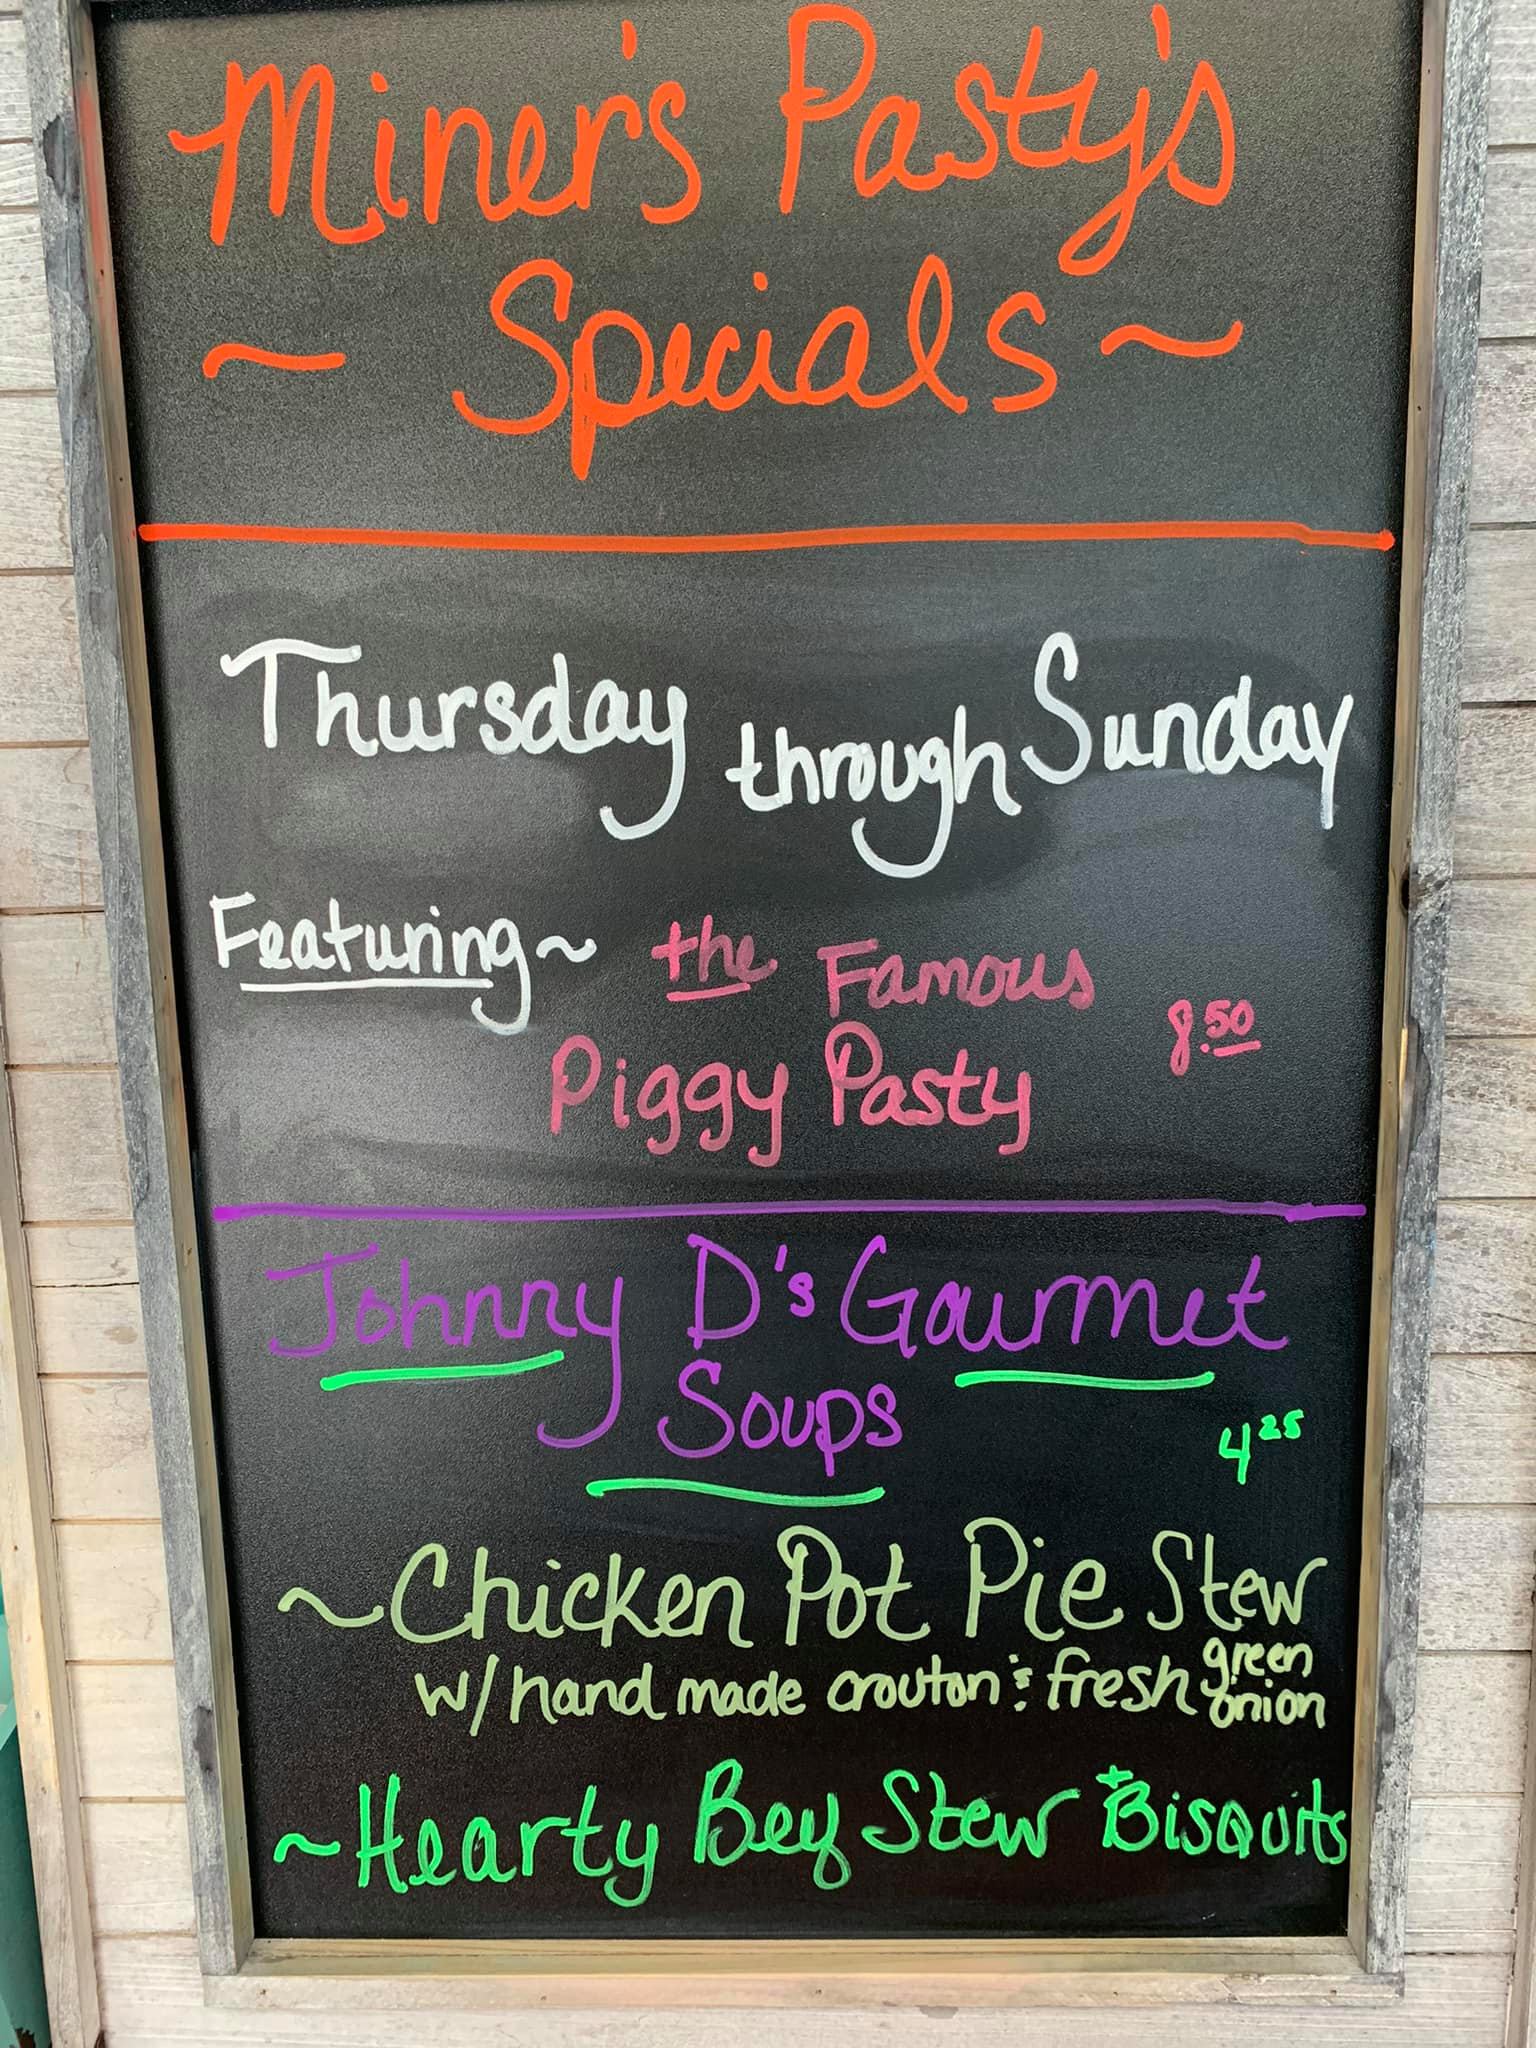 Miner's Pasty's
~ Specials ~
Thursday through Sunday
Featuring ~ the Famous
Piggy Pasty 8.50
Johnny D's Gourmet
Soups 4 25
~ Chicken Pot Pie Stew
w/ hand made crouton & fresh green onion
~ Hearty Beef Stew + Bisquits